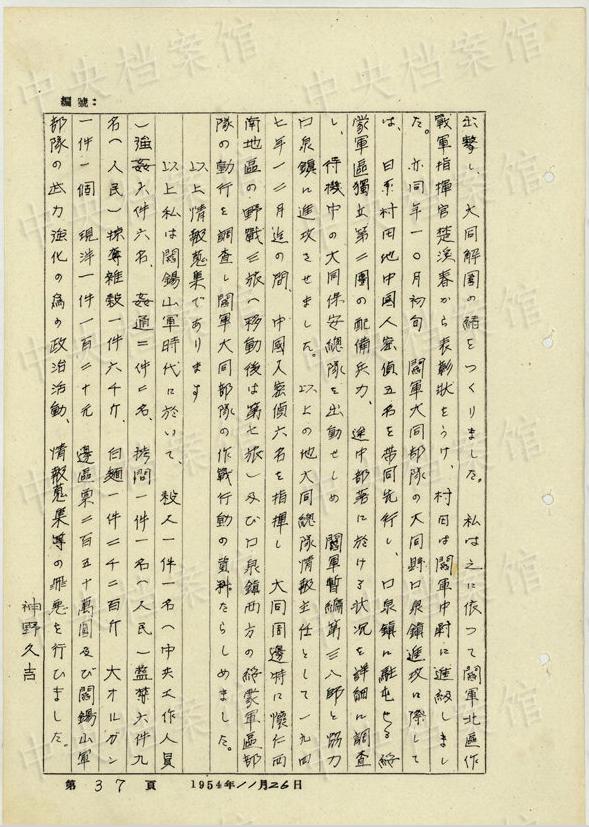 編號：
出撃し、大同解圍の緒をつくりました。私は之に依つて閻軍北區作
戰軍指揮官楚溪春から表彰狀をうけ、村田は閻軍中尉に進級しまし
た。亦同年一〇月初旬 閻軍大同部隊の大同縣口泉鎮進攻に際して
は、日系村田他中國人密偵五名を帶同先行し、口泉鎮に駐屯せる綏
蒙軍區獨立第二團の配備兵力、途中部落に於ける狀況を詳細に調査
し、待機中の大同保安總隊を出動せしめ 閻軍暫編第三八師と協力
口泉鎮に進攻させました。以上の他大同總隊情報主任として一九四
七年一二月迄の間、中國人密偵六名を指揮し 大同周邊特に懷仁西
南地區の野戰三旅(移動後は第七旅)及び口泉鎮西方の綏蒙軍區部
隊の動行を調査し閻軍大同部隊の作戰行動の資料たらしめました。
以上情報蒐集であります
以上私は閻錫山軍時代に於いて、殺人一件一名(中央工作人員
)強姦六件六名、姦通二件二名、拷問一件一名(人民)監禁六件九
名(人民)掠奪雜穀一件六千斤、白麵一件二千二百斤 大オルガン
一件一個 現洋一件一百二十元 邊區票二百五十萬圓及び閻錫山軍
部隊の武力強化の為の政治活動、情報蒐集等の罪惡を行ひました。
神野久吉
第 37 頁 1954年11月26日
中央档案馆